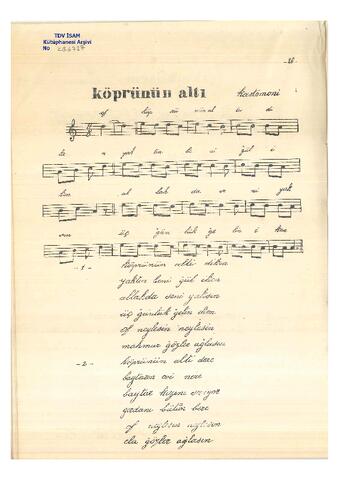 TDV İSAM
Kütüphanesi Arşivi
No
-26-
köprünün altı
Kastamoni
of köp rü nün al tı di
ke n yak tın be ni gül i
ken al lah da se ni yak
sın üç gün lük ge li n i ken
-1- köprünün altı diken
yaktın beni gül iken
allahda seni yaksın
üç günlük gelin iken
of neylesin neylesin
mahmur gözler ağlasın
-2- köprünün altı dere
baytarın evi nere
baytar kızını
gerdanı bütün bere
of neylesin neylesin
ela gözler ağlasın